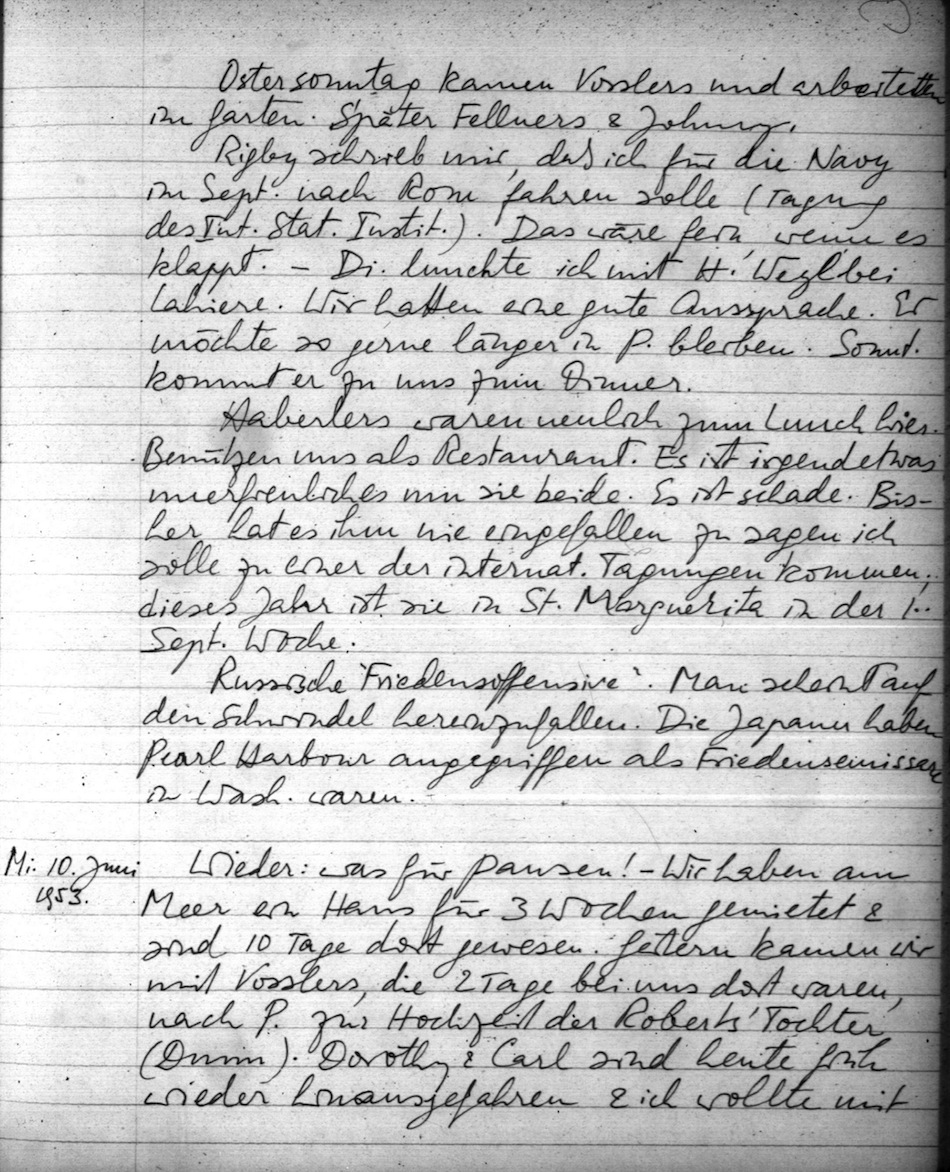 Ostersonntag kamen Vosslers und arbeiteten
im Garten. Später Fellners & Johnny.
Rigby schrieb mir, daß ich für die Navy
im Sept. nach Rom fahren solle (Tagung
des Int. Stat. Instit.). Das wäre fein, wenn es
klappt. – Di. lunchte ich mit H. Weyl bei
Lahiere. Wir hatten eine gute Aussprache. Er
möchte so gerne länger in P. bleiben. Sonnt.
kommt er zu uns zum Dinner.
Haberlers waren neulich zum Lunch hier.
Benützen uns als Restaurant. Es ist irgend etwas
unerfreuliches um sie beide. Es ist schade. Bis-
her hat es ihm nie eingefallen zu sagen ich
solle zu einer der internat. Tagungen kommen;
dieses Jahr ist sie in St. Marguerita in der 1.
Sept. Woche.
Russische "Friedensoffensive". Man scheint auf
den Schwindel hereinzufallen. Die Japaner haben
Pearl Harbour angegriffen als Friedensemissare
in Wash. waren.
Mi. 10. Juni Wieder: was für Pausen! – Wir haben am
1953. Meer ein Haus für 3 Wochen gemietet &
sind 10 Tage dort gewesen. Gestern kamen wir
mit Vosslers, die 2 Tage bei uns dort waren,
nach P. zur Hochzeit der Roberts' Tochter
(Dunn). Dorothy & Carl sind heute früh
wieder hinausgefahren & ich wollte mit